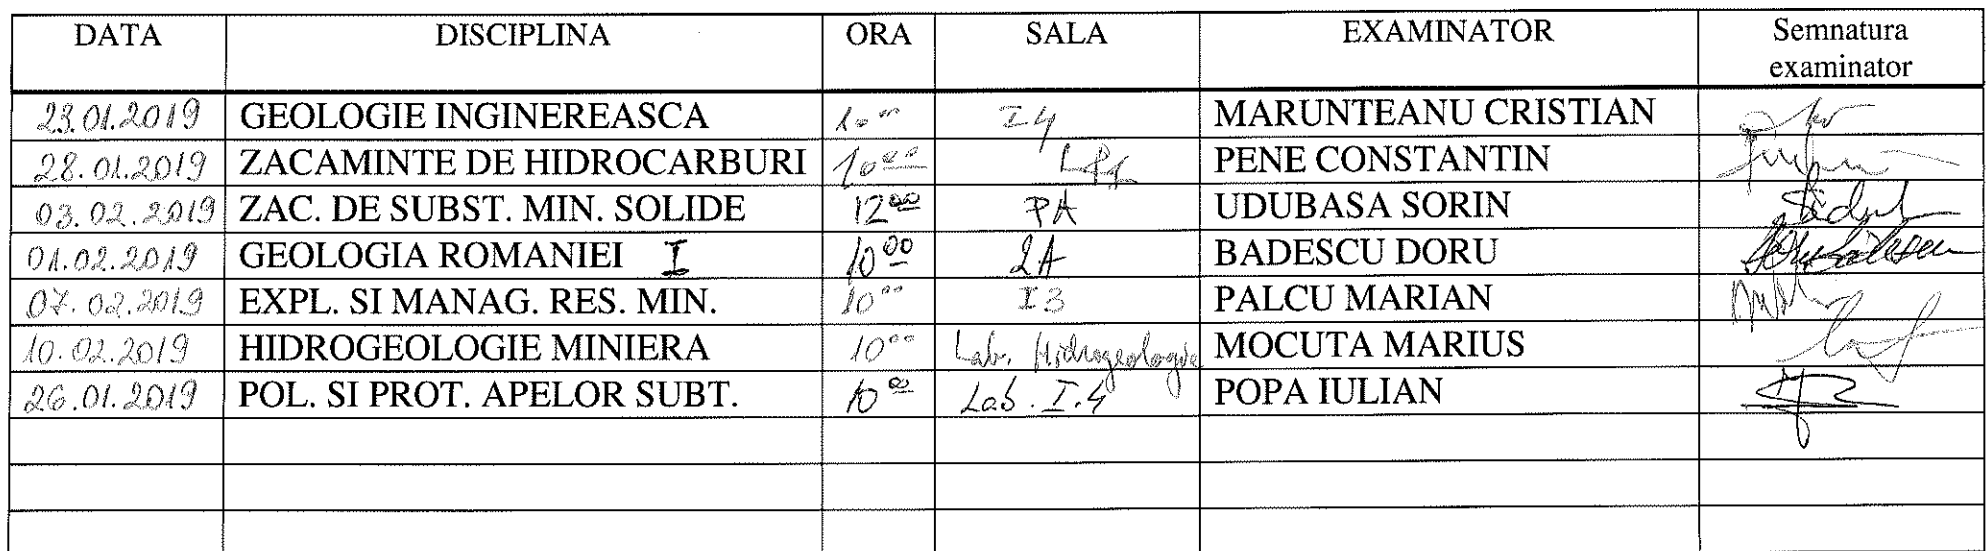 DATA DISCIPLINA ORA SALA EXAMINATOR Semnatura
examinator
23.01.2019 GEOLOGIE INGINEREASCA 10 00 I4 MARUNTEANU CRISTIAN
28.01.2019 ZACAMINTE DE HIDROCARBURI 10 00 PENE CONSTANTIN
03.02.2019 ZAC. DE SUBST. MIN. SOLIDE 12 00 PA UDUBASA SORIN
01.02.2019 GEOLOGIA ROMANIEI I 10 00 2A BADESCU DORU
07.02.2019 EXPL. SI MANAG. RES. MIN. 10 00 I3 PALCU MARIAN
10.02.2019 HIDROGEOLOGIE MINIERA 10 00 Lab. Hidrogeologie MOCUTA MARIUS
26.01.2019 POL. SI PROT. APELOR SUBT. 10 00 Lab. I.4 POPA IULIAN